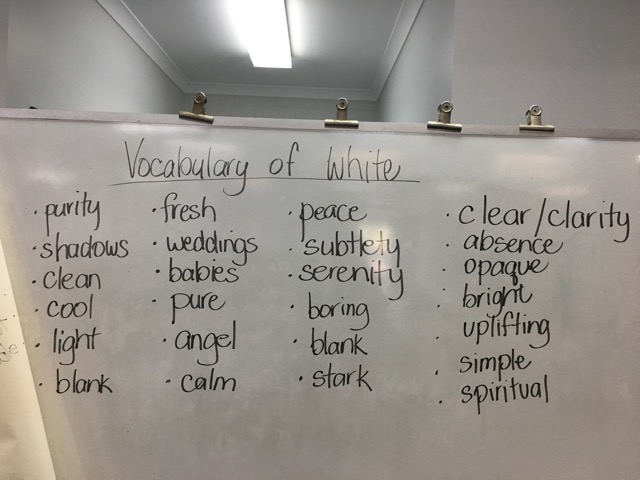 Vocabulary of White
· purity
· shadows
· clean
· cool
· light
· blank
· fresh
· weddings
· babies
· pure
· angel
· calm
· peace
· subtlety
· serenity
· boring
· blank
· stark
· clear/clarity
· absence
· opaque
· bright
· uplifting
· simple
· spiritual